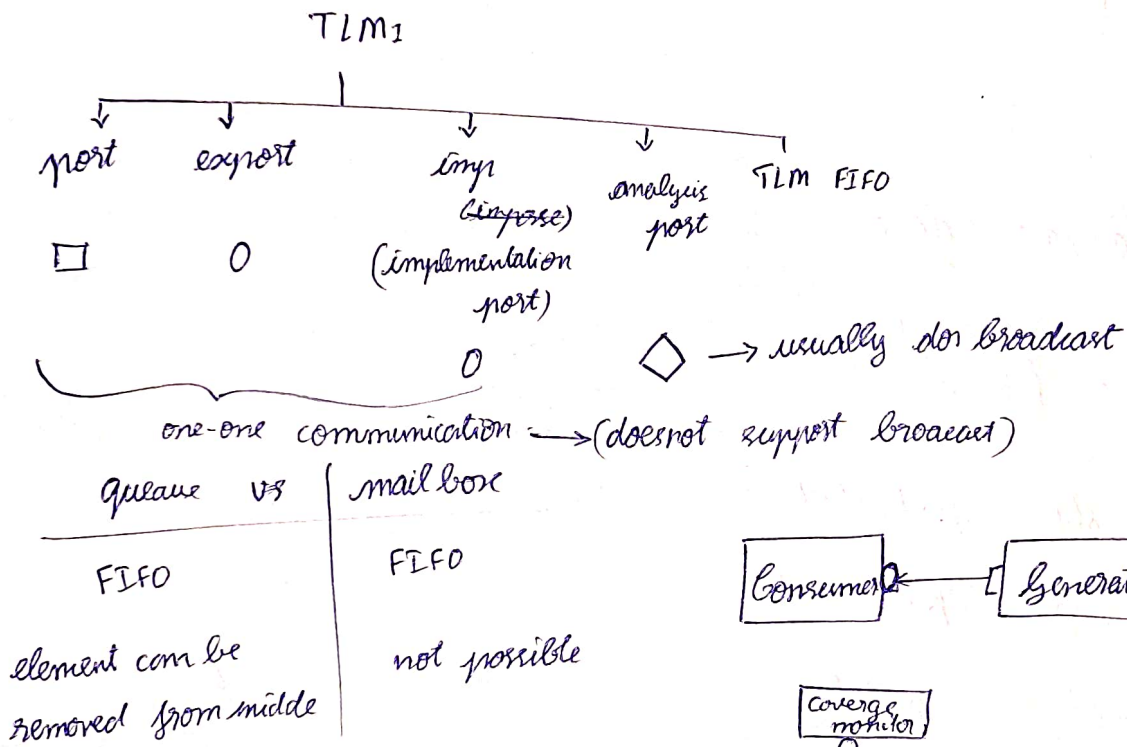 TLM1
port export imp analysis port TLM FIFO
(implementation port)
→ usually dor broadcast
one-one communication → (doesnot support broaecast)
queaue vs mail boxe
FIFO FIFO
element can be removed from midde
not possible
Consumer Generat
coverge monitor